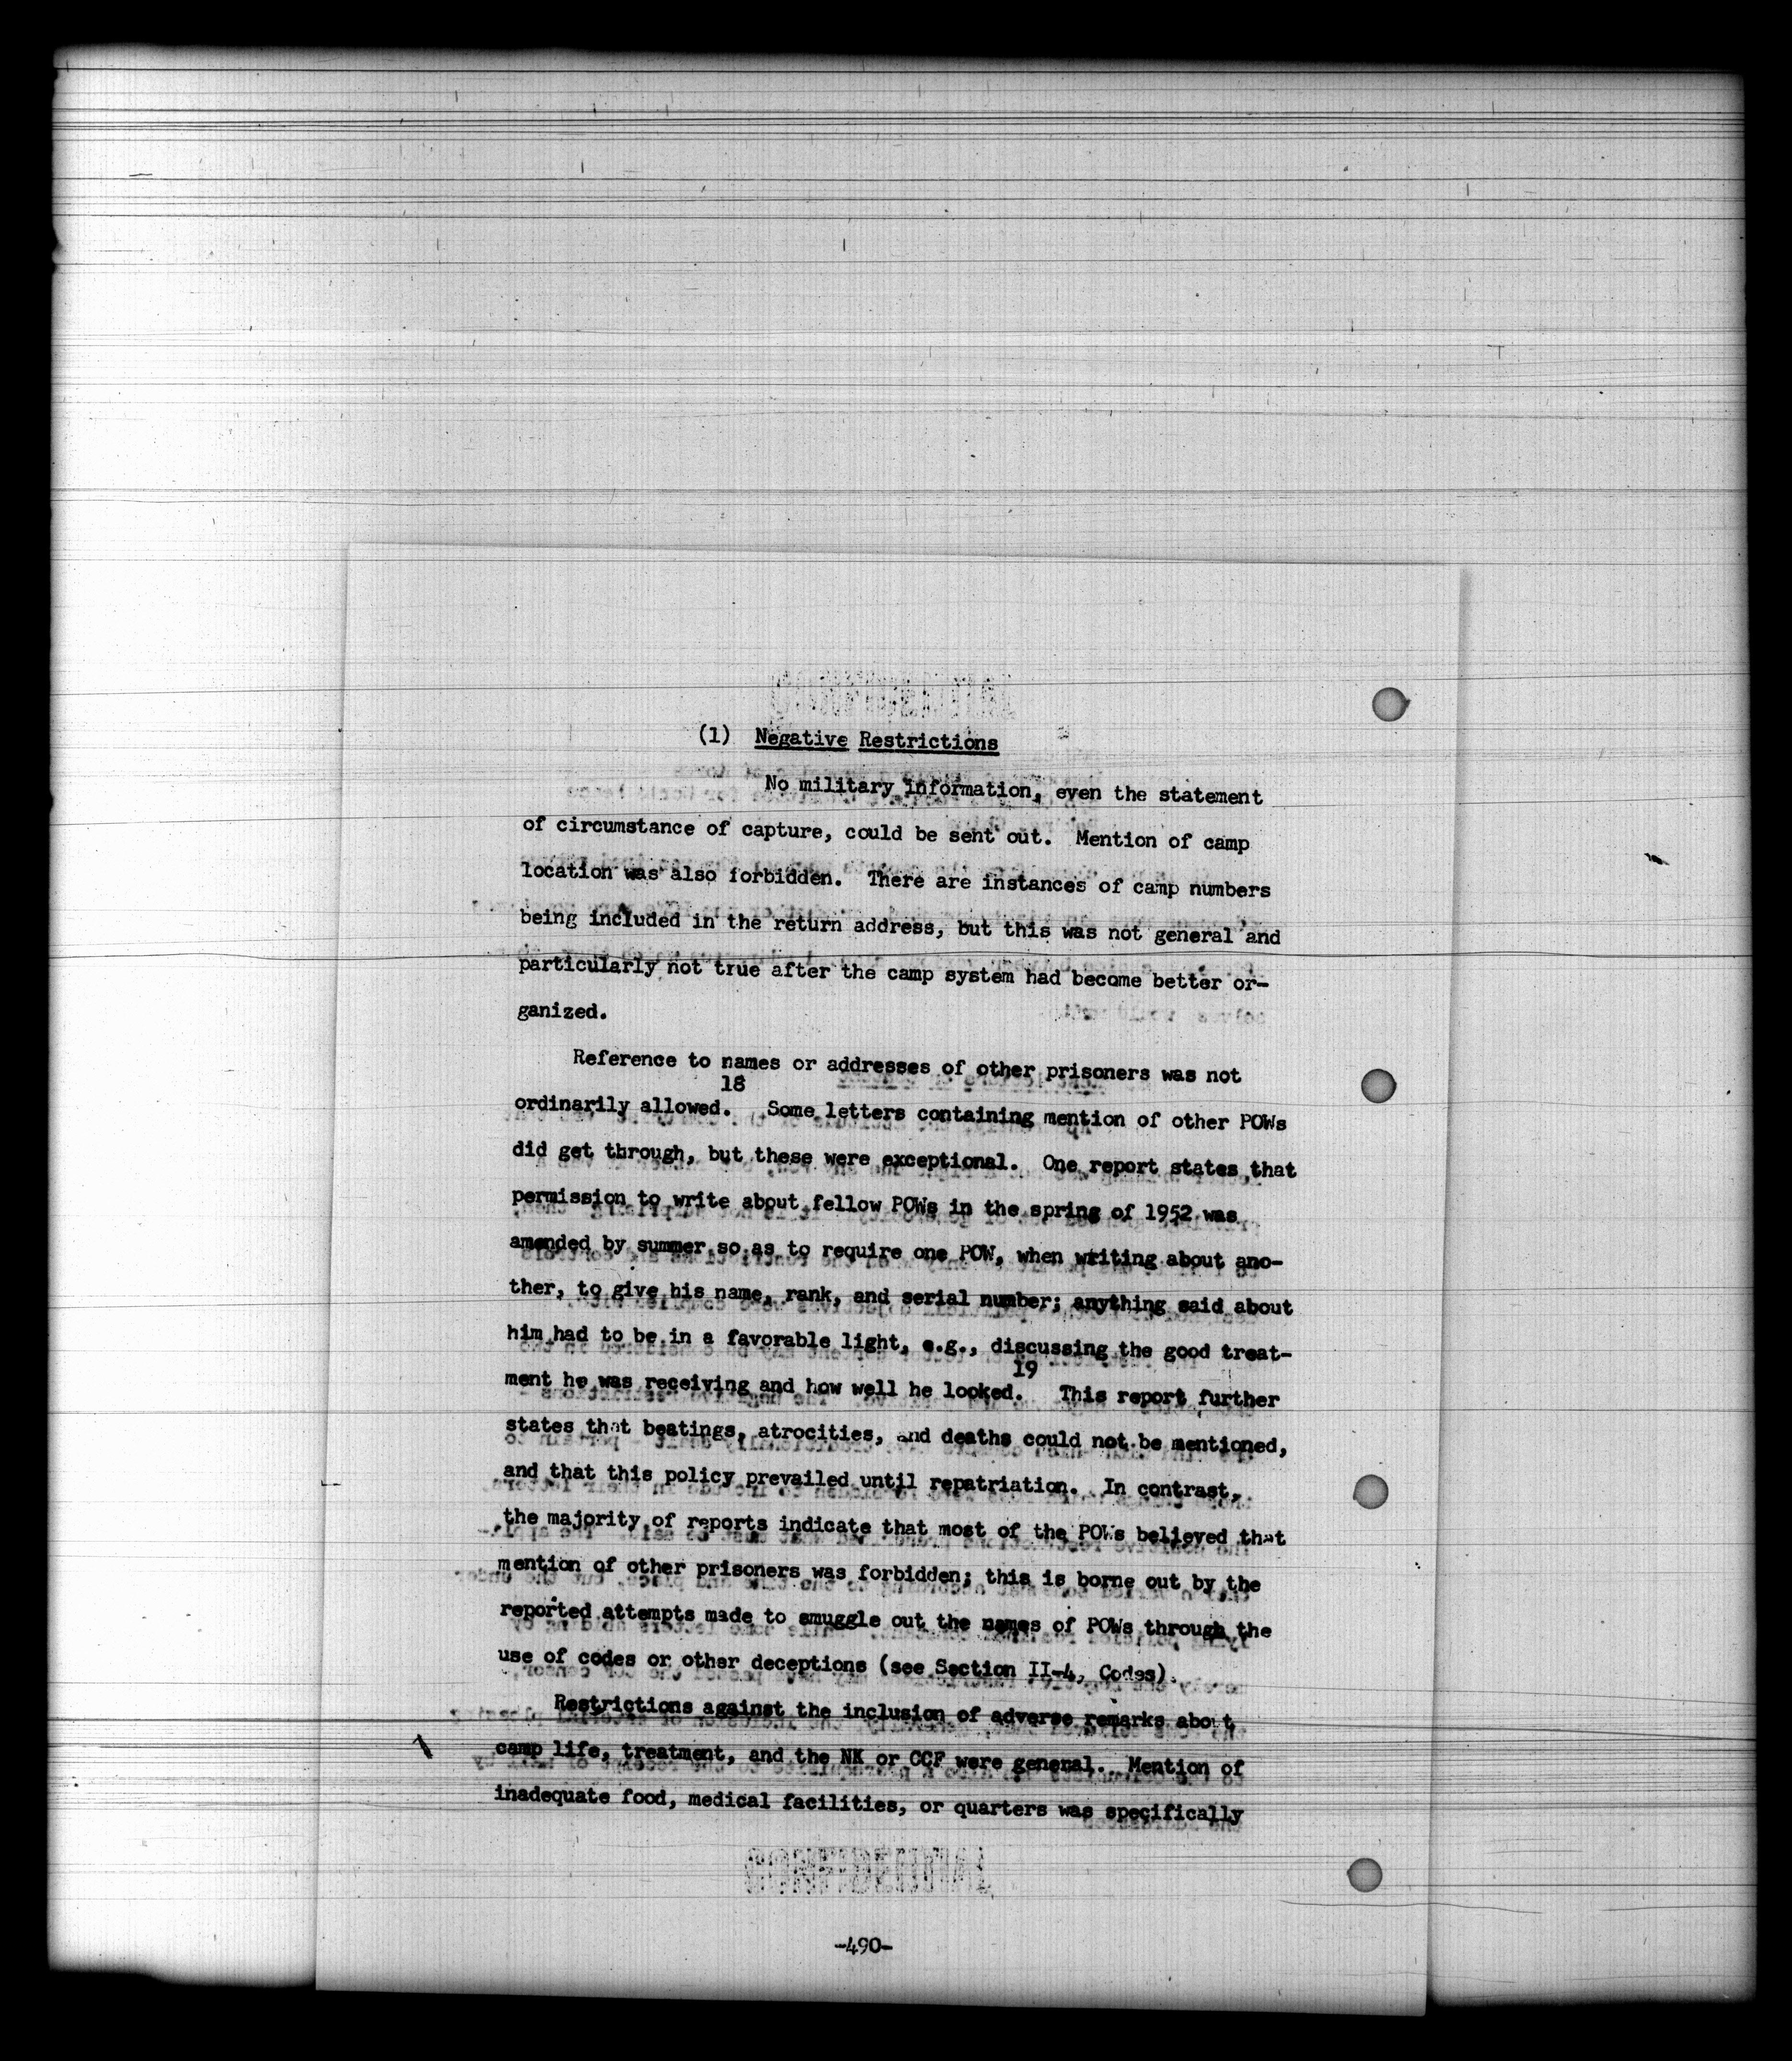 (1) Negative Restrictions
No military information, even the statement
of circumstance of capture, could be sent out. Mention of camp
location was also forbidden. There are instances of camp numbers
being included in the return address, but this was not general and
particularly not true after the camp system had become better or-
ganized.
Reference to names or addresses of other prisoners was not
18
ordinarily allowed. Some letters containing mention of other POWs
did get through, but these were exceptional. One report states that
permission to write about fellow POWs in the spring of 1952 was
amended by summer so as to require one POW, when writing about ano-
ther, to give his name, rank, and serial number; anything said about
him had to be in a favorable light, e.g., discussing the good treat-
19
ment he was receiving and how well he looked. This report further
states that beatings, atrocities, and deaths could not be mentioned,
and that this policy prevailed until repatriation. In contrast,
the majority of reports indicate that most of the POWs believed that
mention of other prisoners was forbidden; this is borne out by the
reported attempts made to smuggle out the names of POWs through the
use of codes or other deceptions (see Section II-4, Codes).
Restrictions against the inclusion of adverse remarks about
camp life, treatment, and the NK or CCF were general. Mention of
inadequate food, medical facilities, or quarters was specifically
-490-